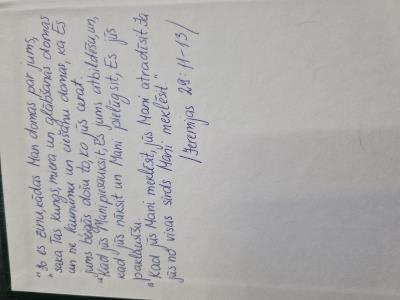 "Jo es zinu, kādas Man domas par jums,
saka Tas Kungs, miera un glābšanas domas
un ne ļaunuma un ciešanu domas, ka Es
jums beigās došu to, ko jūs cerat.
"Kad jūs Mani piesauksit, Es jums atbildēšu, un,
kad jūs nāksit un Mani pielūgsit, Es jūs
paklausīšu.
"Kad jūs Mani meklēsit, jūs Mani atradīsit. Ja
jūs no visas sirds Mani meklēsit"
/Jeremijas 29:11-13/